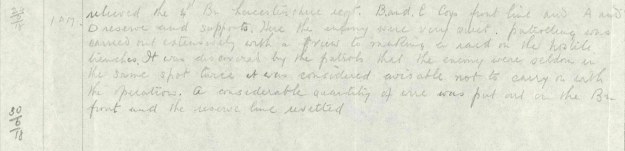 relieved the 4th Bn Leicestershire regt. B and C Coys front line and A and
D reserve and supports. Here the enemy were very quiet. patrolling was
carried out extensively with a view to making a raid on the hostile
trenches. It was discovered by the patrols that the enemy were seldom in
the same spot twice it was considered advisable not to carry on with
the operations. A considerable quantity of wire was put out on the Bn
front and the reserve line revetted
30/6/18